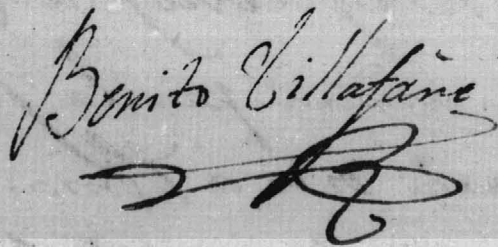 Benito Villafañe